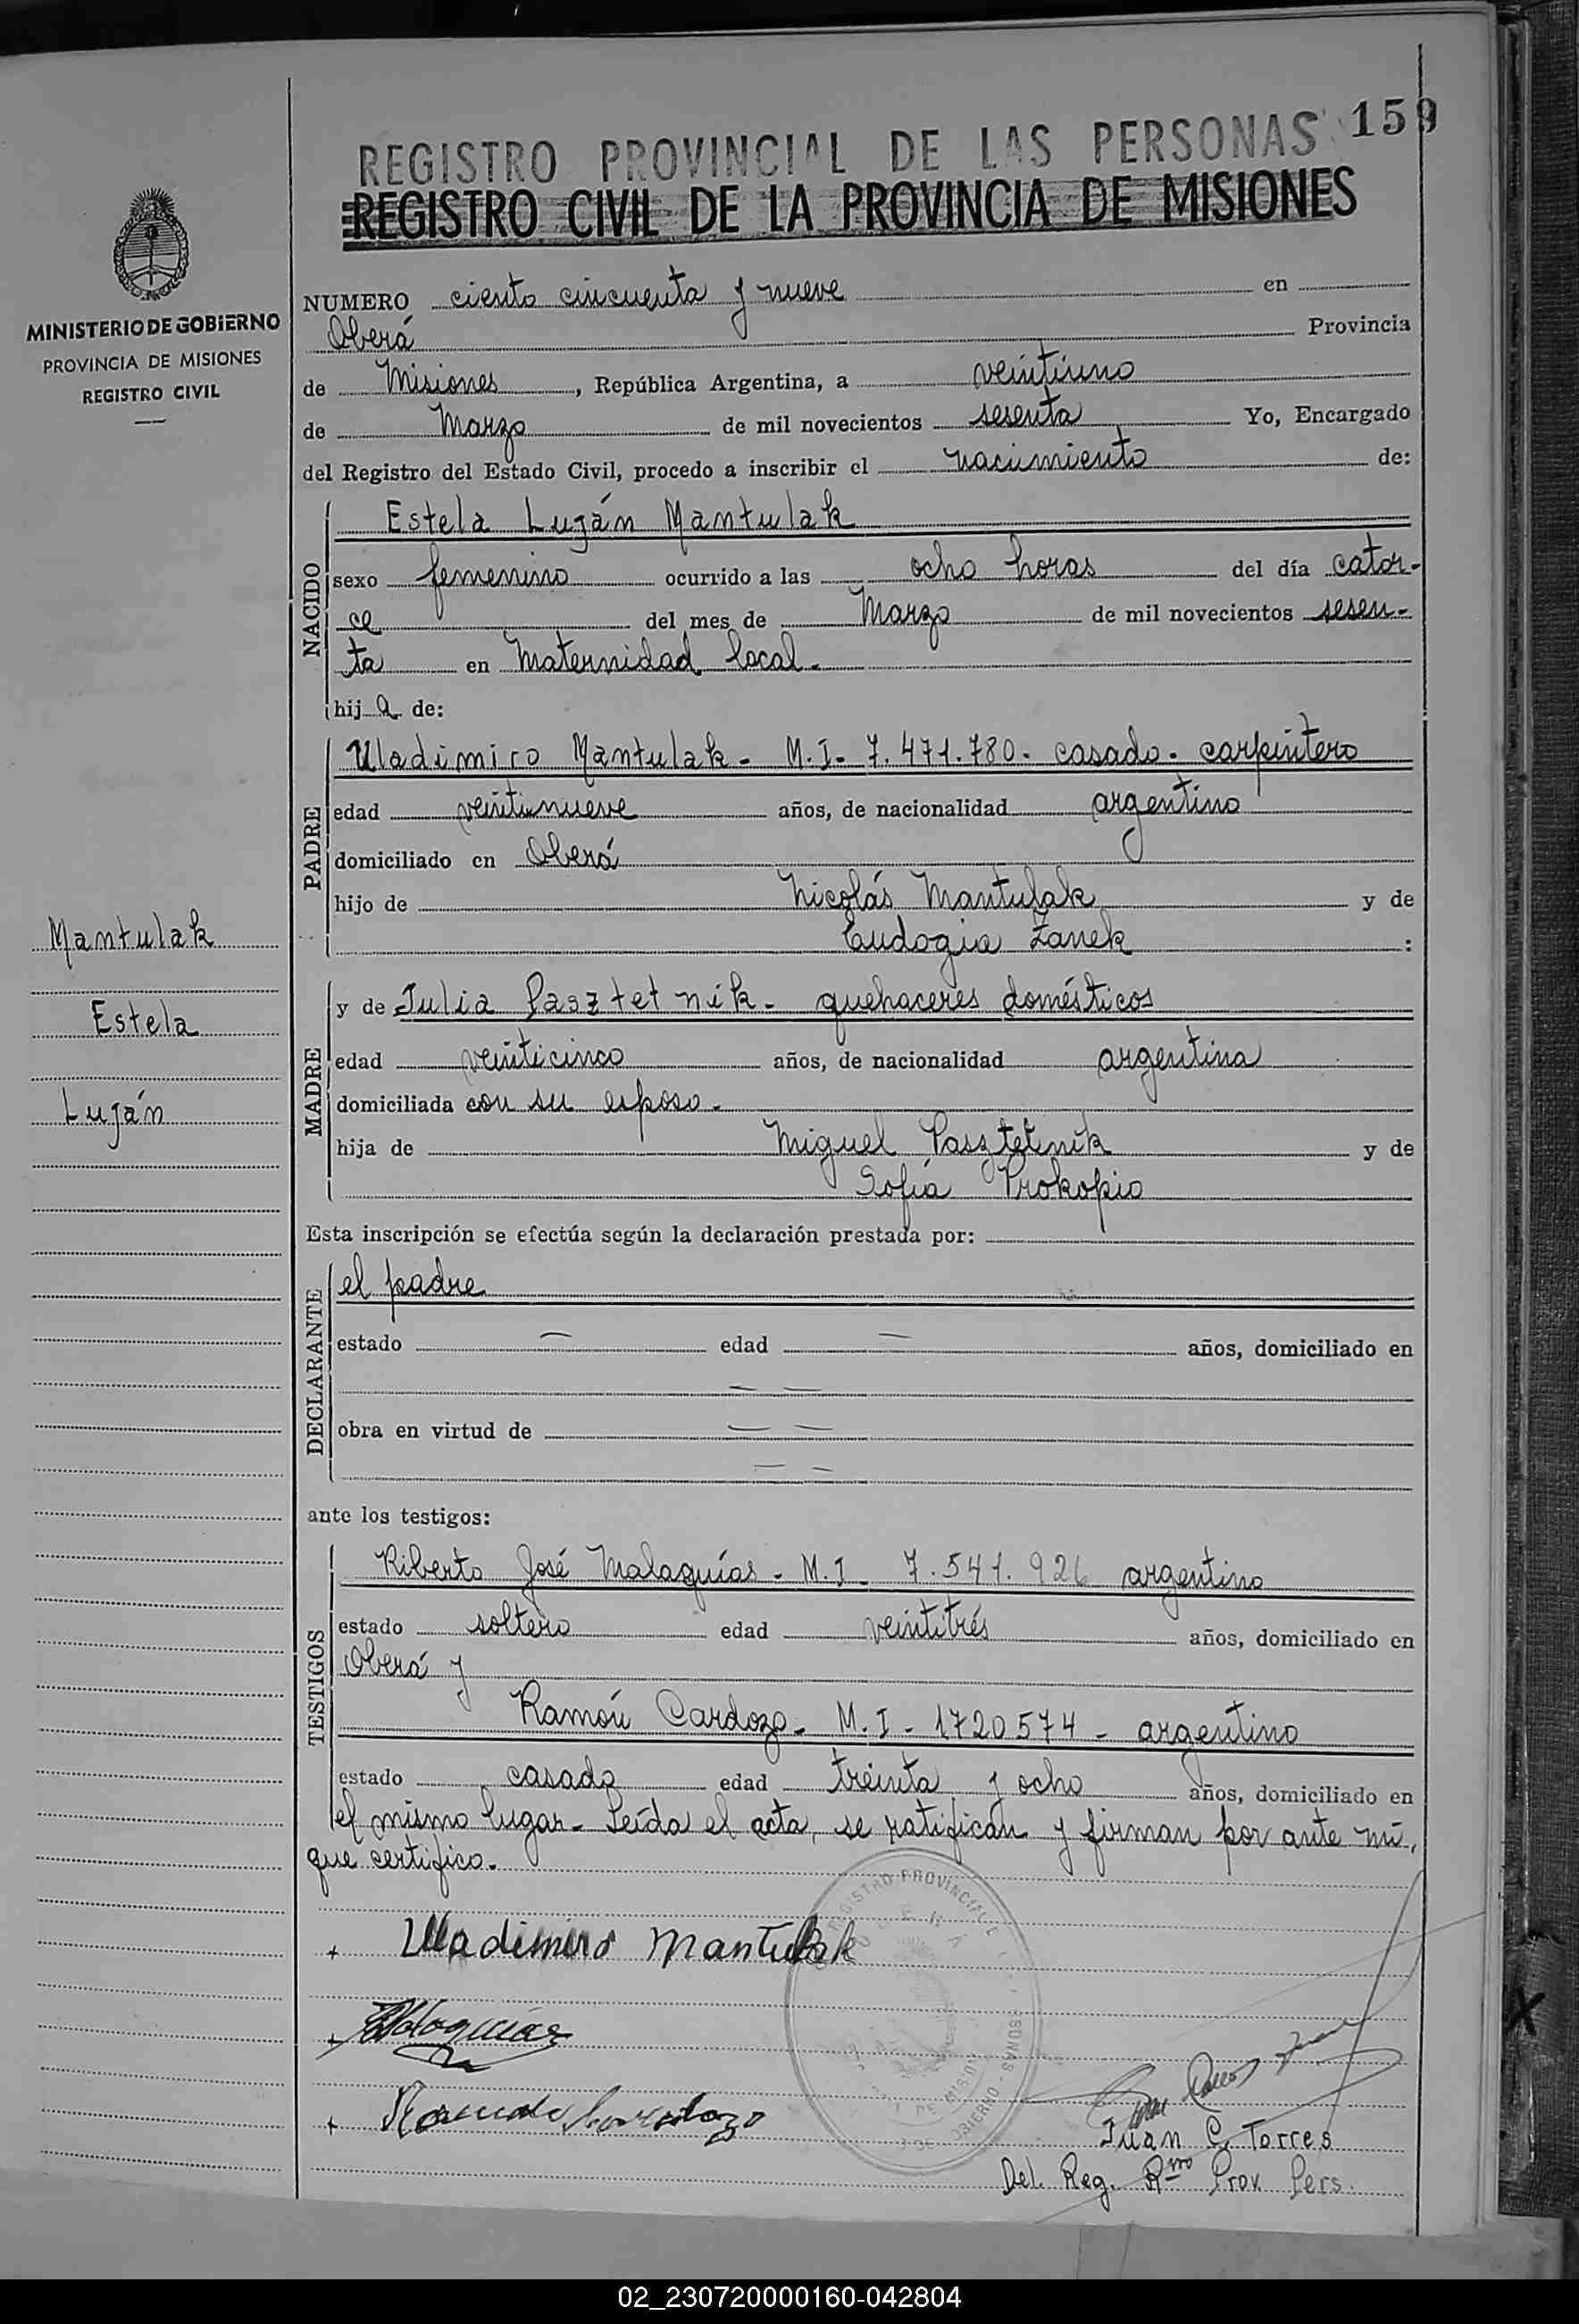 159
REGISTRO PROVINCIAL DE LAS PERSONAS
REGISTRO CIVIL DE LA PROVINCIA DE MISIONES
MINISTERIO DE GOBIERNO
PROVINCIA DE MISIONES
REGISTRO CIVIL
NUMERO ciento cincuenta y nueve en
Oberá Provincia
de Misiones, República Argentina, a veintiuno
de Marzo de mil novecientos sesenta Yo, Encargado
del Registro del Estado Civil, procedo a inscribir el nacimiento de:
NACIDO
Estela Luján Mantulak
sexo femenino ocurrido a las ocho horas del día cator-
ce del mes de Marzo de mil novecientos sesen-
ta en Maternidad local.
hija de:
PADRE
Uladimiro Mantulak - M.I- 7.471.780- casado- carpintero
edad veintinueve años, de nacionalidad argentino
domiciliado en Oberá
hijo de Nicolás Mantulak y de
Eudogia Zanek :
Mantulak
Estela
Luján
MADRE
y de Julia Pasztetnik - quehaceres domésticos
edad veinticinco años, de nacionalidad argentina
domiciliada con su esposo.
hija de Miguel Pasztetnik y de
Sofía Prokopio
Esta inscripción se efectúa según la declaración prestada por:
DECLARANTE
el padre
estado — edad — años, domiciliado en
— —
obra en virtud de — —
— —
ante los testigos:
TESTIGOS
Riberto José Malaquías - M.I- 7.541.926 argentino
estado soltero edad veintitrés años, domiciliado en
Oberá y
Ramón Cardozo- M.I- 1720574 - argentino
estado casado edad treinta y ocho años, domiciliado en
el mismo lugar- Leída el acta, se ratifican y firman por ante mí,
que certifico.
+ Uladimiro Mantulak
+ Malaquías
+ Cardozo
REGISTRO PROVINCIAL
Juan C. Torres
Del. Reg. Rmo Prov. Pers.
02_230720000160-042804